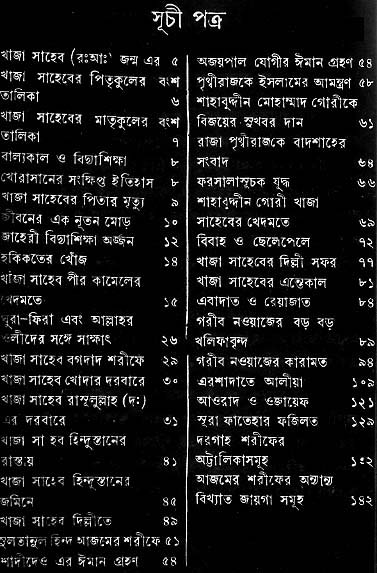 সূচী পত্র
খাজা সাহেব (রঃআঃ) জন্ম এর ৫
খাজা সাহেবের পিতৃকুলের বংশ
তালিকা ৬
খাজা সাহেবের মাতৃকুলের বংশ
তালিকা ৭
বাল্যকাল ও বিদ্যাশিক্ষা ৮
খোরাসানের সংক্ষিপ্ত ইতিহাস ৮
খাজা সাহেবের পিতার মৃত্যু ৯
জীবনের এক নূতন মোড় ১০
জাহেরী বিদ্যাশিক্ষা অর্জ্জন ১২
হকিকতের খোঁজ ১৪
খাজা সাহেব পীর কামেলের
খেদমতে ১৫
ঘুরা-ফিরা এবং আল্লাহর
ওলীদের সঙ্গে সাক্ষাৎ ২৬
খাজা সাহেব বগদাদ শরীফে ২৯
খাজা সাহেব খোদার দরবারে ৩০
খাজা সাহেব রাসূলুল্লাহ (দঃ)
এর দরবারে ৩১
খাজা সাহেব হিন্দুস্তানের
রাস্তায় ৪১
খাজা সাহেব হিন্দুস্তানের
জমিনে ৪৫
খাজা সাহেব দিল্লীতে ৪৯
সুলতানুল হিন্দ আজমের শরীফে ৫১
শাদীদেও এর ঈমান গ্রহণ ৫৪
অজয়পাল যোগীর ঈমান গ্রহণ ৫৪
পৃথ্বীরাজকে ইসলামের আমন্ত্রণ ৫৮
শাহাবুদ্দীন মোহাম্মাদ গোরীকে
বিজয়ের সুখবর দান ৬১
রাজা পৃথ্বীরাজকে বাদশাহের
সংবাদ ৬৪
ফয়সালাসূচক যুদ্ধ ৬৬
শাহাবুদ্দীন গোরী খাজা
সাহেবের খেদমতে ৬৯
বিবাহ ও ছেলেপেলে ৭২
খাজা সাহেবের দিল্লী সফর ৭৭
খাজা সাহেবের এন্তেকাল ৮১
এবাদাত ও রেয়াজাত ৮৪
গরীব নওয়াজের বড় বড়
খলিফাবৃন্দ ৮৯
গরীব নওয়াজের কারামত ৯৪
এরশাদাতে আলীয়া ১০৯
আওরাদ ও ওজায়েফ ১২১
সুরা ফাতেহার ফজিলত ১২৯
দরগাহ শরীফের
অট্টালিকাসমূহ ১৩২
আজমের শরীফের অন্যান্য
বিখ্যাত জায়গা সমূহ ১৪২